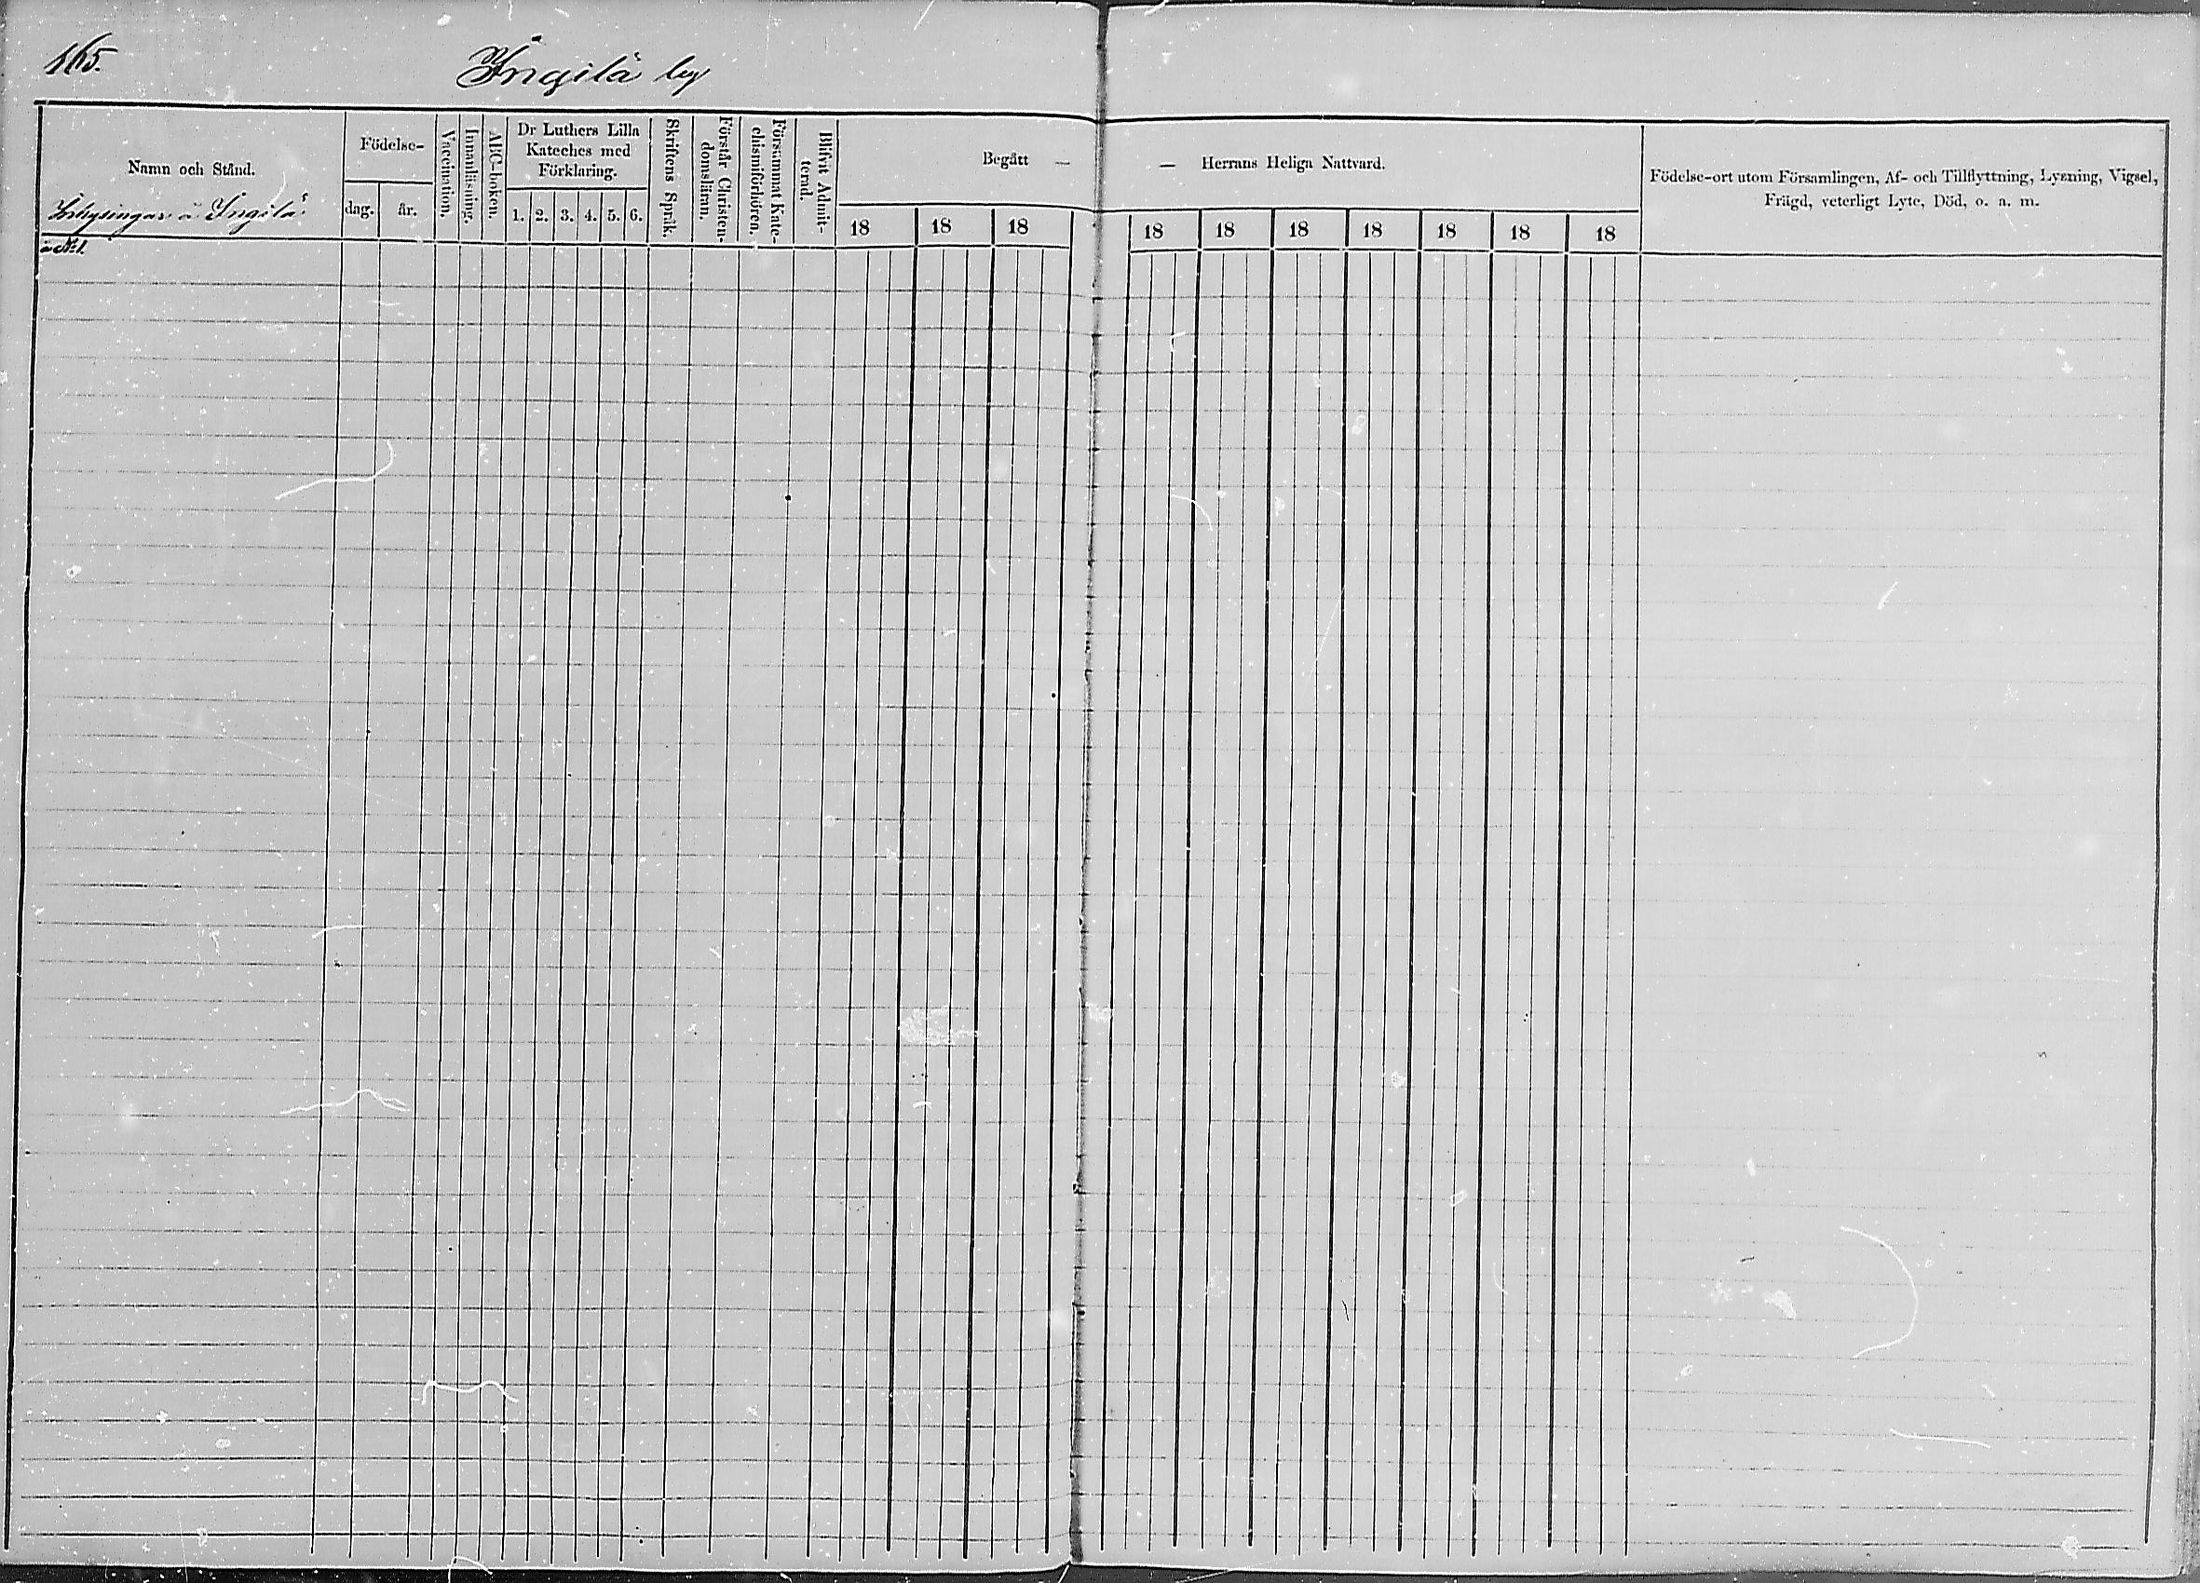 165.
Ingilä by
Namn och Stånd.
Inhysingar å Ingilä
å No 1.
Födelse-
dag.
år.
Vaccination.
Innanläsning.
ABC-boken.
Dr Luthers Lilla
Kateches med
Förklaring.
1. 2. 3. 4. 5. 6.
Skriftens Språk.
Förstår Christen-
domsläran.
Försummat Kate-
chismiförhören.
Blifvit Admit-
terad.
Begått —
18 18 18
— Herrans Heliga Nattvard.
18 18 18 18 18 18 18
Födelse-ort utom Församlingen, Af- och Tillflyttning, Lysning, Vigsel,
Frägd, veterligt Lyte, Död, o. a. m.